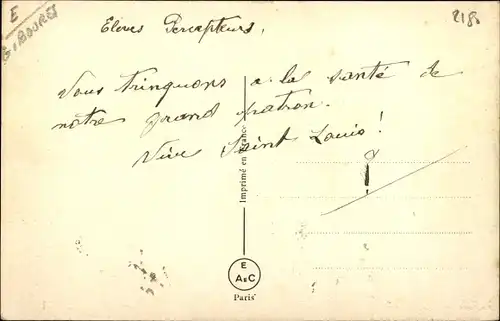 E
GIBOURET
2180
Elèves Percepteurs,
Nous trinquons a la santé de
notre grand patron.
Vive Saint Louis!
Imprimé en France
E
A E C
Paris